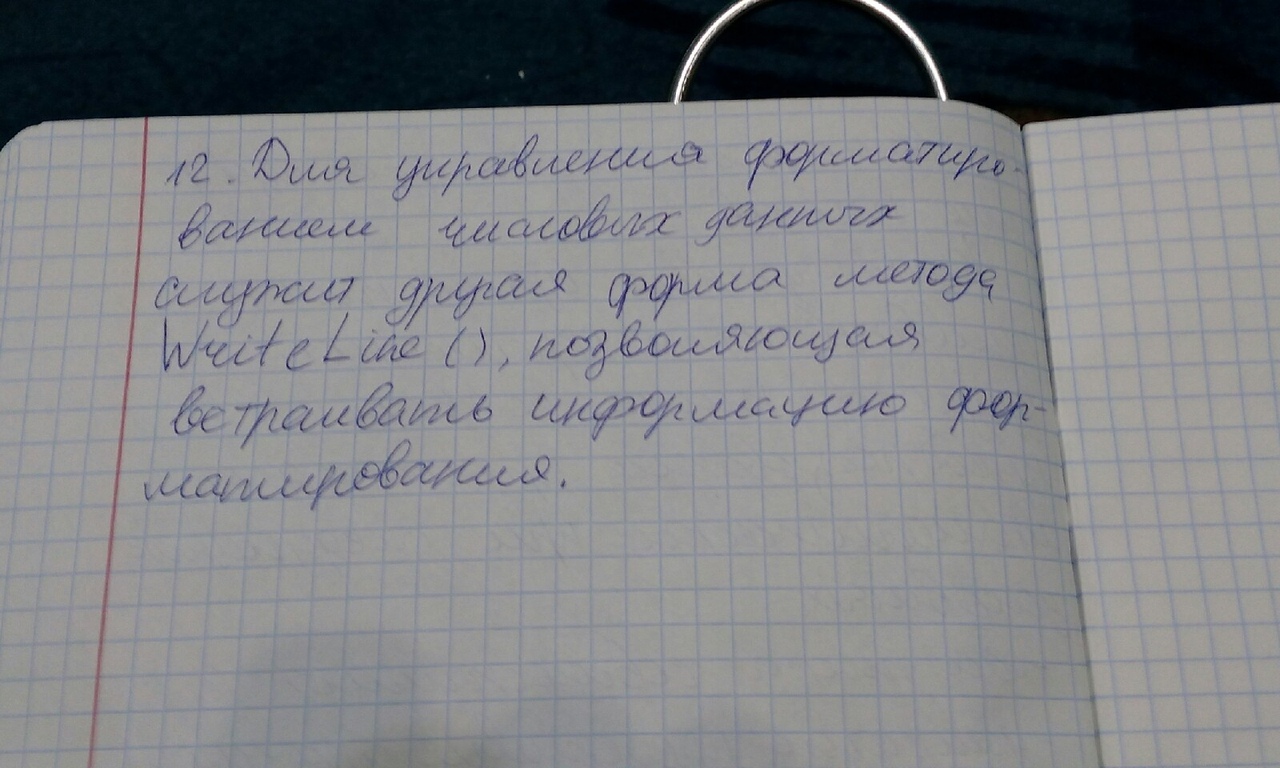 12. Для управления форматиро-
ванием числовых данных
служит другая форма метода
WriteLine(), позволяющая
встраивать информацию фор-
матирования.